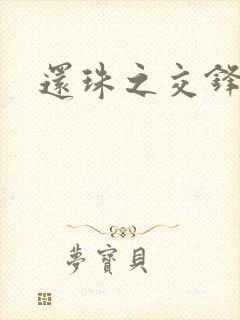 還珠之交鋒
夢寶貝